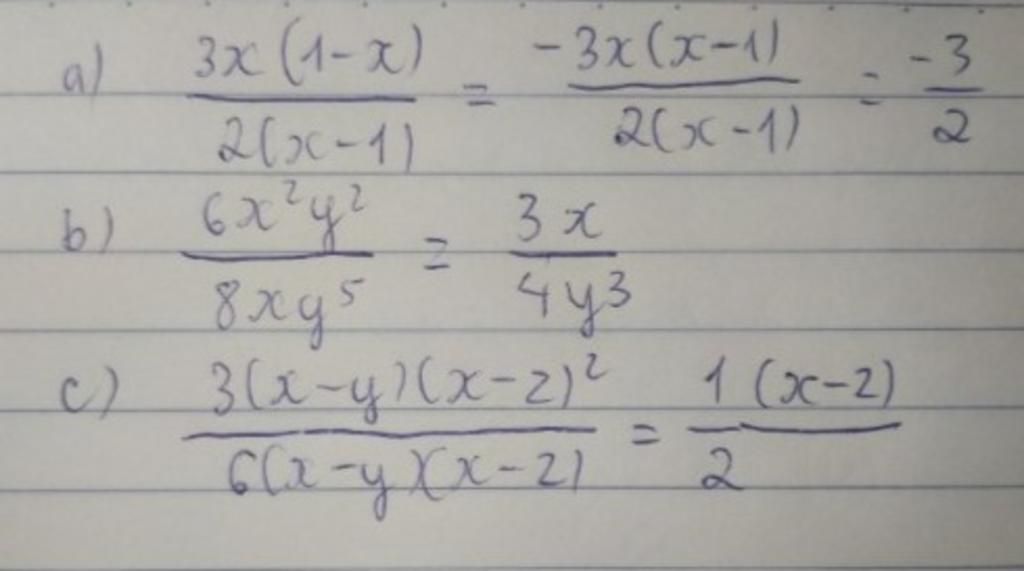 a) \frac{3x(1-x)}{2(x-1)} = \frac{-3x(x-1)}{2(x-1)} = \frac{-3}{2}
b) \frac{6x^2y^2}{8xy^5} = \frac{3x}{4y^3}
c) \frac{3(x-y)(x-2)^2}{6(x-y)(x-2)} = \frac{1(x-2)}{2}